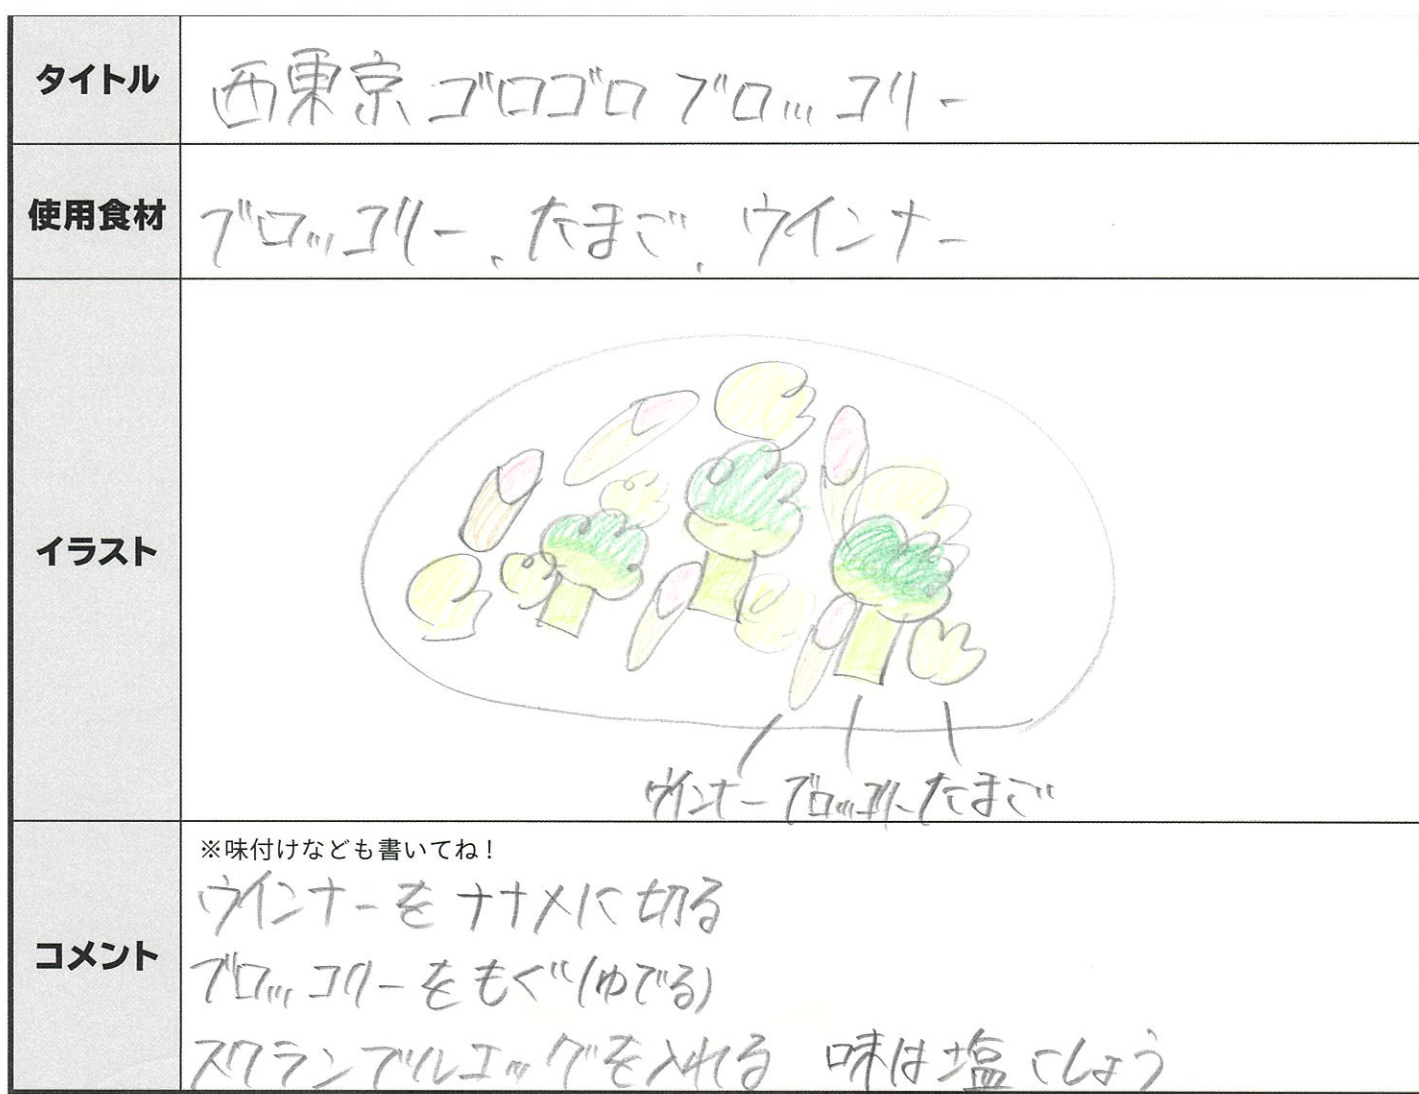 タイトル
西東京ゴロゴロブロッコリー
使用食材
ブロッコリー、たまご、ウインナー
イラスト
ウインナー ブロッコリー たまご
コメント
※味付けなども書いてね！
ウインナーをナナメに切る
ブロッコリーをもぐ(ゆでる)
スクランブルエッグを入れる 味は塩こしょう